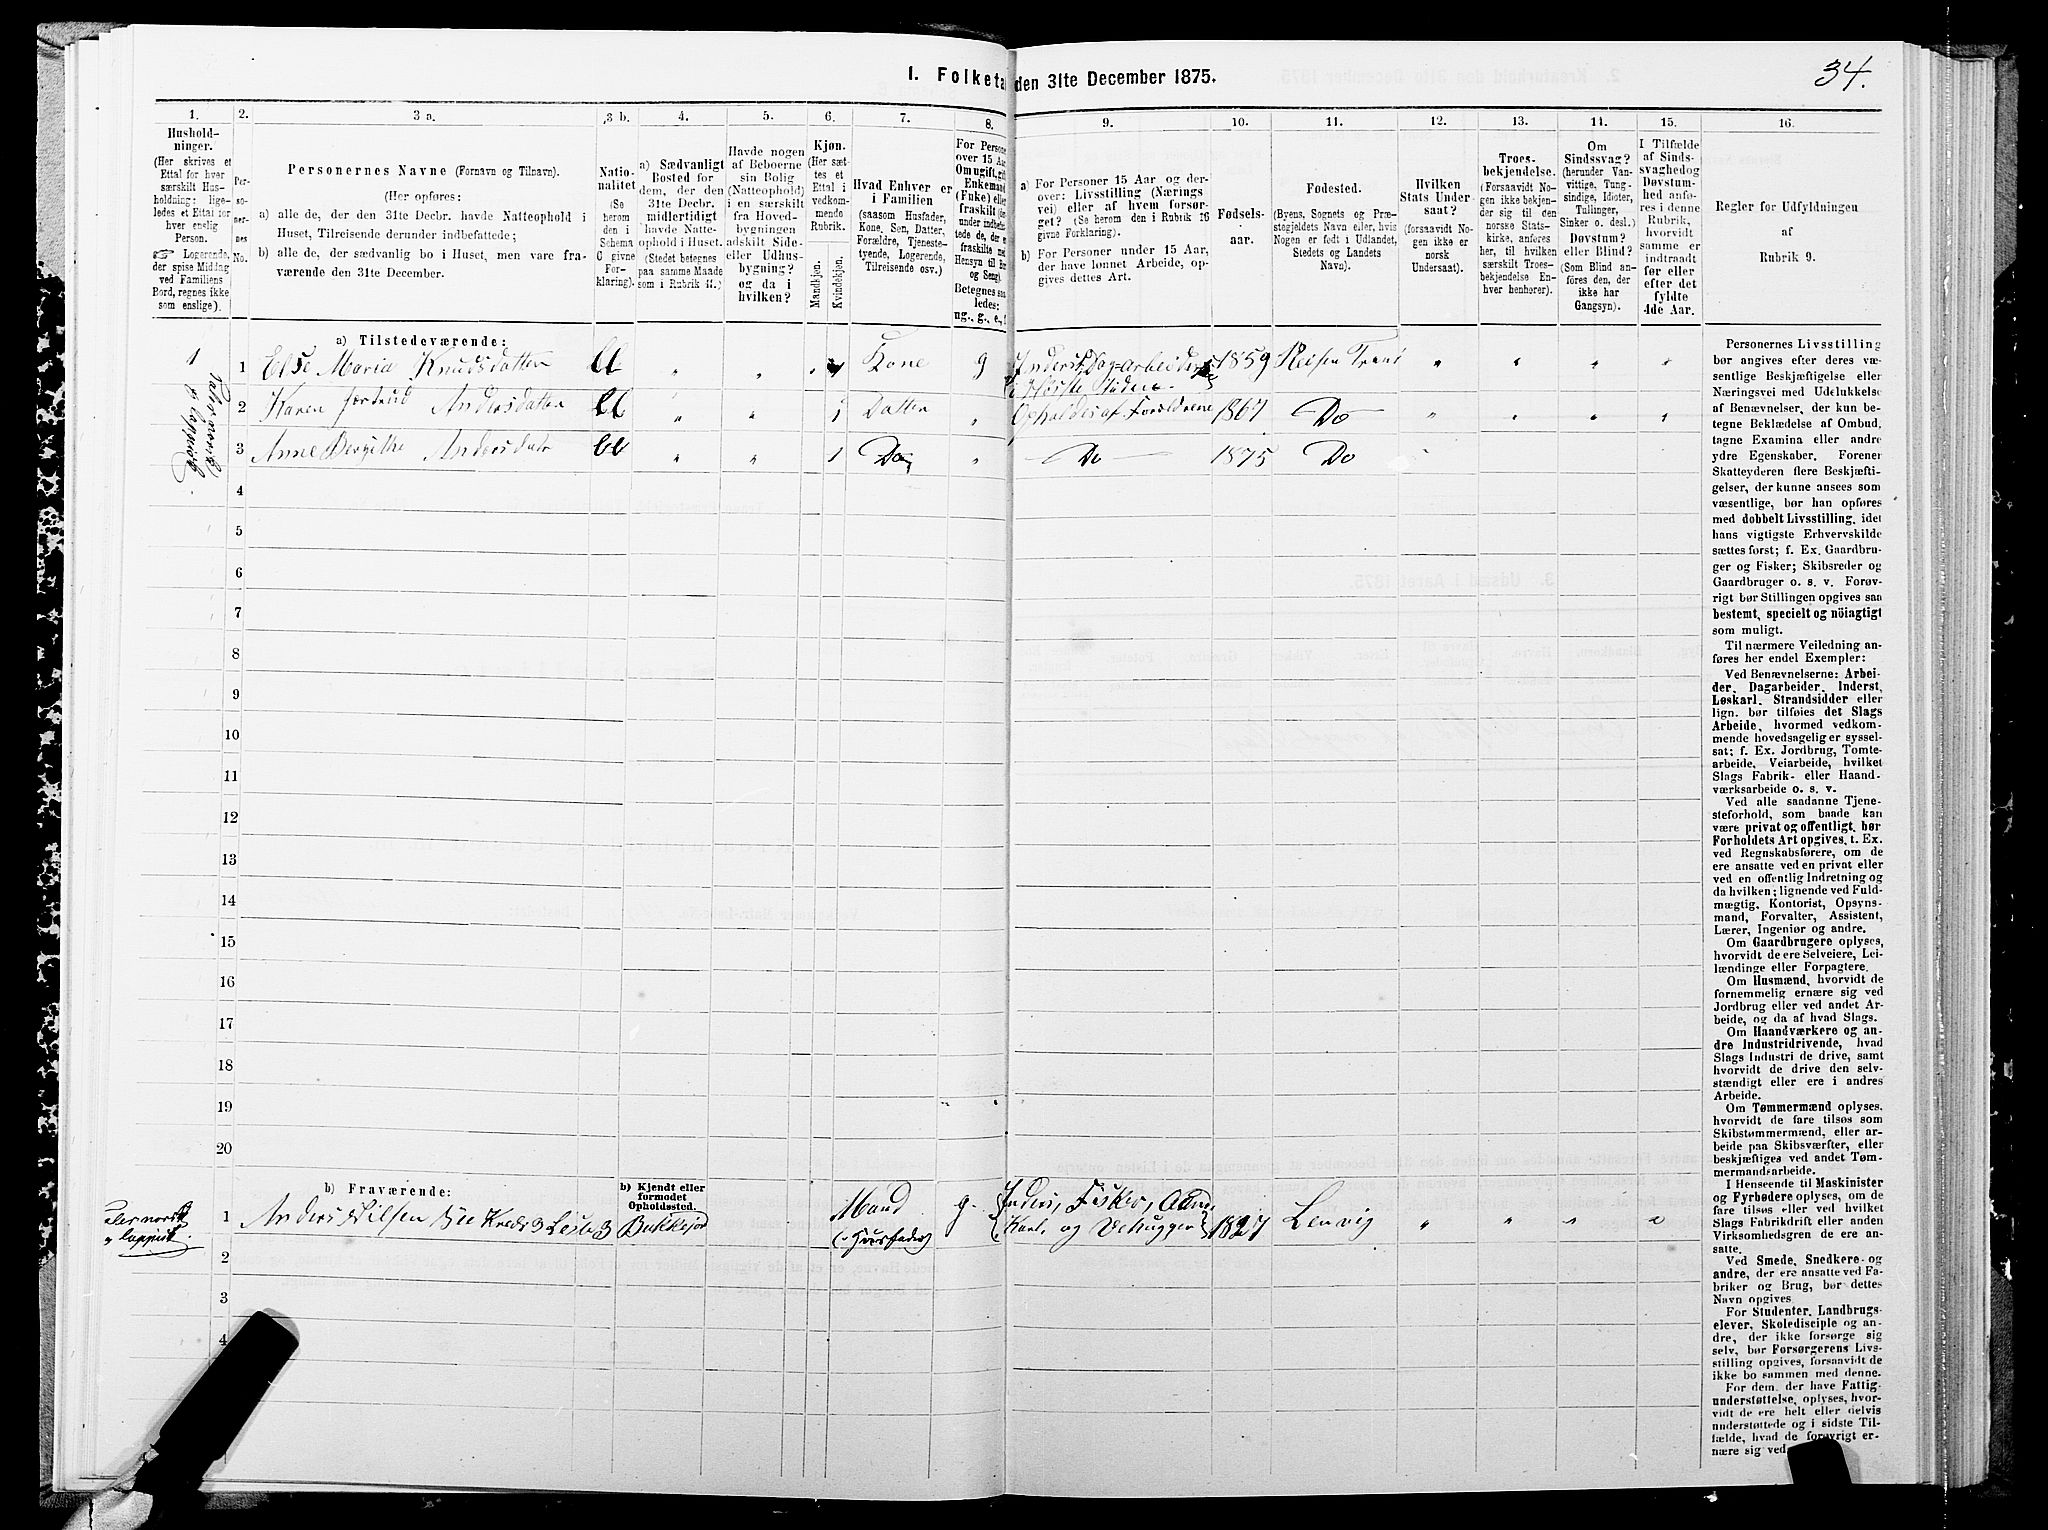 34.
1. Folketa den 31te December 1875.
1.
Hushold-
ninger.
(Her skrives et
Ettal for hver
særskilt Hus-
holdning; lige-
ledes et Ettal for
hver enslig
Person.
☞ Logerende,
der spise Middag
ved Familiens
Bord, regnes ikke
som enslige).
2.
Per-
so-
ner-
nes
No.
3 a.
Personernes Navne (Fornavn og Tilnavn).
(Her opføres:
a) alle de, der den 31te Decbr. havde Natteophold i
Huset, Tilreisende derunder indbefattede;
b) alle de, der sædvanlig bo i Huset, men vare fra-
værende den 31te December.
3 b.
Natio-
nalitet
(Se
herom
den i
Schema
C givne
For-
klaring).
4.
a) Sædvanligt
Bosted for
dem, der den
31te Decbr.
midlertidigt
havde Natte-
ophold i Huset.
(Stedet betegnes
paa samme Maade
som i Rubrik 11.)
5.
Havde nogen
af Beboerne
sin Bolig
(Natteophold)
i en særskilt
fra Hoved-
bygningen
adskilt Side-
eller Udhus-
bygning?
og da i
hvilken?
6.
Kjøn.
(Her sæt-
tes et
Ettal i
vedkom-
mende
Rubrik.
Mandkjøn.
Kvindekjøn.
7.
Hvad Enhver er
i Familien
(saasom Husfader,
Kone, Søn, Datter,
Forældre, Tjeneste-
tyende, Logerende,
Tilreisende osv.)
8.
For Persone
over 15 Aa
Om ugift, gift
Enkemand
(Enke) elle
fraskilt (for-
under indbefat-
tede de, der er
fraskilte med
Hensyn til Bor
og Seng).
Betegnes saa
ledes:
ug., g., e.,
9.
a) For Personer 15 Aar og der-
over: Livsstilling (Nærings
vei) eller af hvem forsør-
get? (Se herom den i Rubrik 16
givne Forklaring).
b) For Personer under 15 Aar,
der have lønnet Arbeide, op-
gives dettes Art.
10.
Fødsels-
aar.
11.
Fødested.
(Byens, Sognets og Præ-
stegjeldets Navn eller, hvis
Nogen er født i Udlandet,
Stedets og Landets
Navn).
12.
Hvilken
Stats Under
saat?
(forsaavidt No-
gen ikke er
norsk
Undersaat).
13.
Troes-
bekjendelse.
(Forsaavidt No-
gen ikke bekjen-
der sig til den
norske Stats-
kirke, anføres
her, til hvilken
særskilt Troes-
bekjendelse En-
hver henhører).
14.
Om
Sindssvag?
(herunder Van-
vittige, Tung-
sindige, Idioter,
Tullinger,
Sinker o. desl.)
Døvstum?
eller Blind?
(Som Blind an-
føres den, der
ikke har
Gangsyn).
15.
I Tilfælde
af Sinds-
svaghed og
Døvstum-
hed anfø-
res i denne
Rubrik,
hvorvidt
samme er
indtraadt
før eller
efter det
fyldte
4de Aar.
16.
Regler for Udfyldningen
af
Rubrik 9.
a) Tilstedeværende:
1 1 Else Maria Knudsdatter " " 1 Kone g Inderst, Dagarbeider 1859 Reisen Troms " " " "
2 Karen Andersdatter " " 1 Datter " Opholdes af Forældrene 1867 Do " " " "
3 Anne Bergithe Andersdatr " " 1 Do " Do 1875 Do
4
5
6
7
8
9
10
11
12
13
14
15
16
17
18
19
20
b) Fraværende:
b) Kjendt eller
formodet
Opholdssted.
1 Anders Nilsen Mand g. Inders, Fisker,
(Huusfader) Karl. og Vedhugger 1827 Lenvig " " " "
2
3
4
Personernes Livsstilling
bør angives efter deres væ-
sentlige Beskjæftigelse eller
Næringsvei med Udelukkelse
af Benævnelser, der kun be-
tegne Beklædelse af Ombud,
tagne Examina eller andre
ydre Egenskaber. Forener
Skatteyderen flere Beskjæfti-
gelser, der kunne ansees som
væsentlige, bør han opføres
med dobbelt Livsstilling, idet
hans vigtigste Erhvervskilde
sættes først; f. Ex. Gaardbru-
ger og Fisker; Skibsreder og
Gaardbruger o. s. v. Forøv-
rigt bør Stillingen opgives saa
bestemt, specielt og nöiagtigt
som muligt.
Til nærmere Veiledning an-
føres her endel Exempler:
Ved Benævnelserne: Arbei-
der, Dagarbeider, Inderst,
Løskarl, Strandsidder eller
lign. bør tilføies det Slags
Arbeide, hvormed vedkom-
mende hovedsagelig er syssel-
sat; f. Ex. Jordbrug, Tomte-
arbeide, Veiarbeide, hvilket
Slags Fabrik- eller Haand-
værksarbeide o. s. v.
Ved alle saadanne Tjene-
steforhold, som baade kan
være privat og offentligt, bør
Forholdets Art opgives, t. Ex.
ved Regnskabsførere, om de
ere ansatte ved en privat eller
ved en offentlig Indretning og
da hvilken; lignende ved Fuld-
mægtig, Kontorist, Opsyns-
mand, Forvalter, Assistent,
Lærer, Ingeniør og andre.
Om Gaardbrugere oplyses,
hvorvidt de ere Selveiere, Lei-
lændinge eller Forpagtere.
Om Husmænd, hvorvidt de
fornemmelig ernære sig ved
Jordbrug eller ved andet Ar-
beide, og da af hvad Slags.
Om Haandværkere og an-
dre Industridrivende, hvad
Slags Industri de drive, samt
hvorvidt de drive den selv-
stændigt eller ere i andres
Arbeide.
Om Tømmermænd oplyses,
hvorvidt de fare tilsøs som
Skibstømmermænd, eller ar-
beide paa Skibsværfter, eller
beskjæftiges ved andet Tøm-
mermandsarbeide.
I Henseende til Maskinister
og Fyrbødere oplyses, om de
fare tilsøs eller ved hvilket
Slags Fabrikdrift eller anden
Virksomhedsgren de ere an-
satte.
Ved Smede, Snedkere og
andre, der ere ansatte ved Fa-
briker og Brug, bør dettes
Navn opgives
For Studenter, Landbrugs-
elever, Skoledisciple og an-
dre, der ikke forsørge sig
selv, bør Forsørgerens Livs-
stilling opgives, forsaavidt de
ikke bo sammen med denne.
For dem, der have Fattig-
understøttelse, oplyses, hvor-
vidt de ere helt eller delvis
understøttede og i sidste Til-
fælde, hvad de forøvrigt er-
nære sig ved